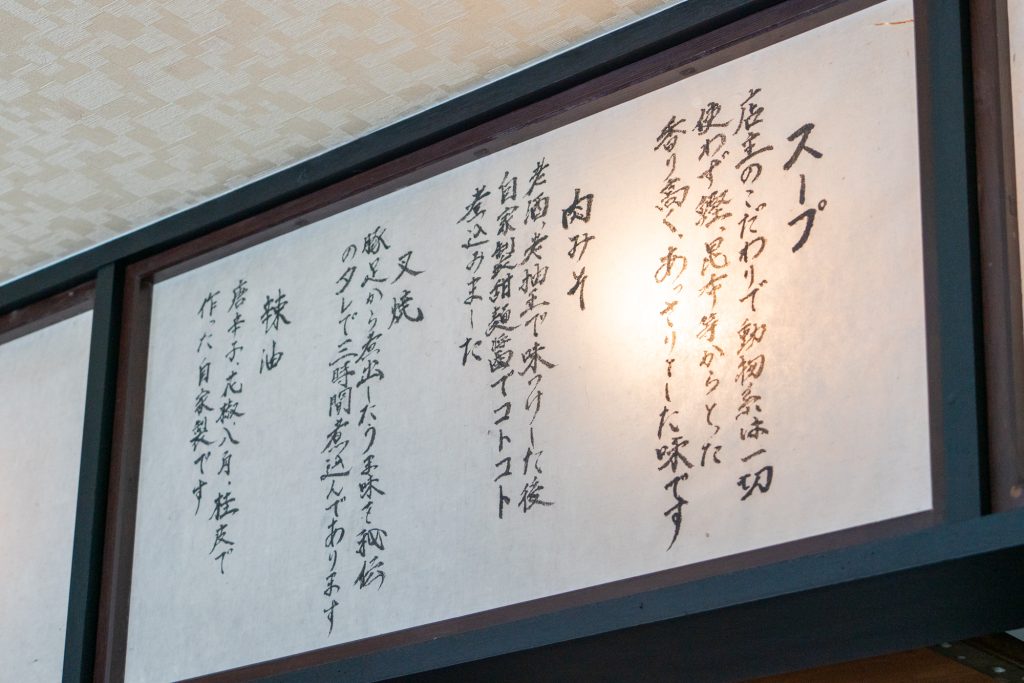 スープ
店主のこだわりで動物系は一切
使わず鰹、昆布等からとった
香り高く、あっさりとした味です
肉みそ
老酒、老抽王で味つけした後
自家製甜麺醤でコトコト
煮込みました
叉焼
豚足から煮出したうま味と秘伝
のタレで三時間煮込んであります
辣油
唐辛子、花椒、八月、桂皮で
作った自家製です